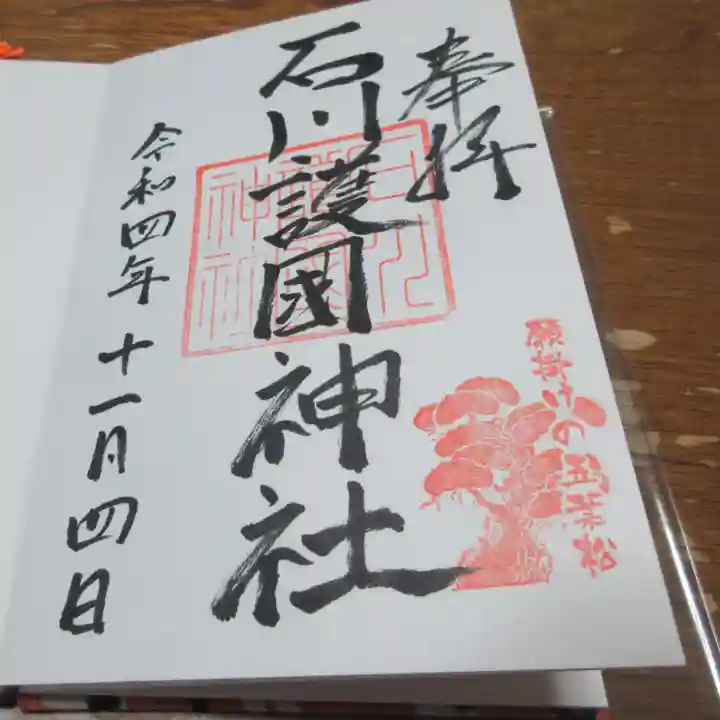 奉拝
石川護國神社
令和四年十一月四日
願掛けの五葉松